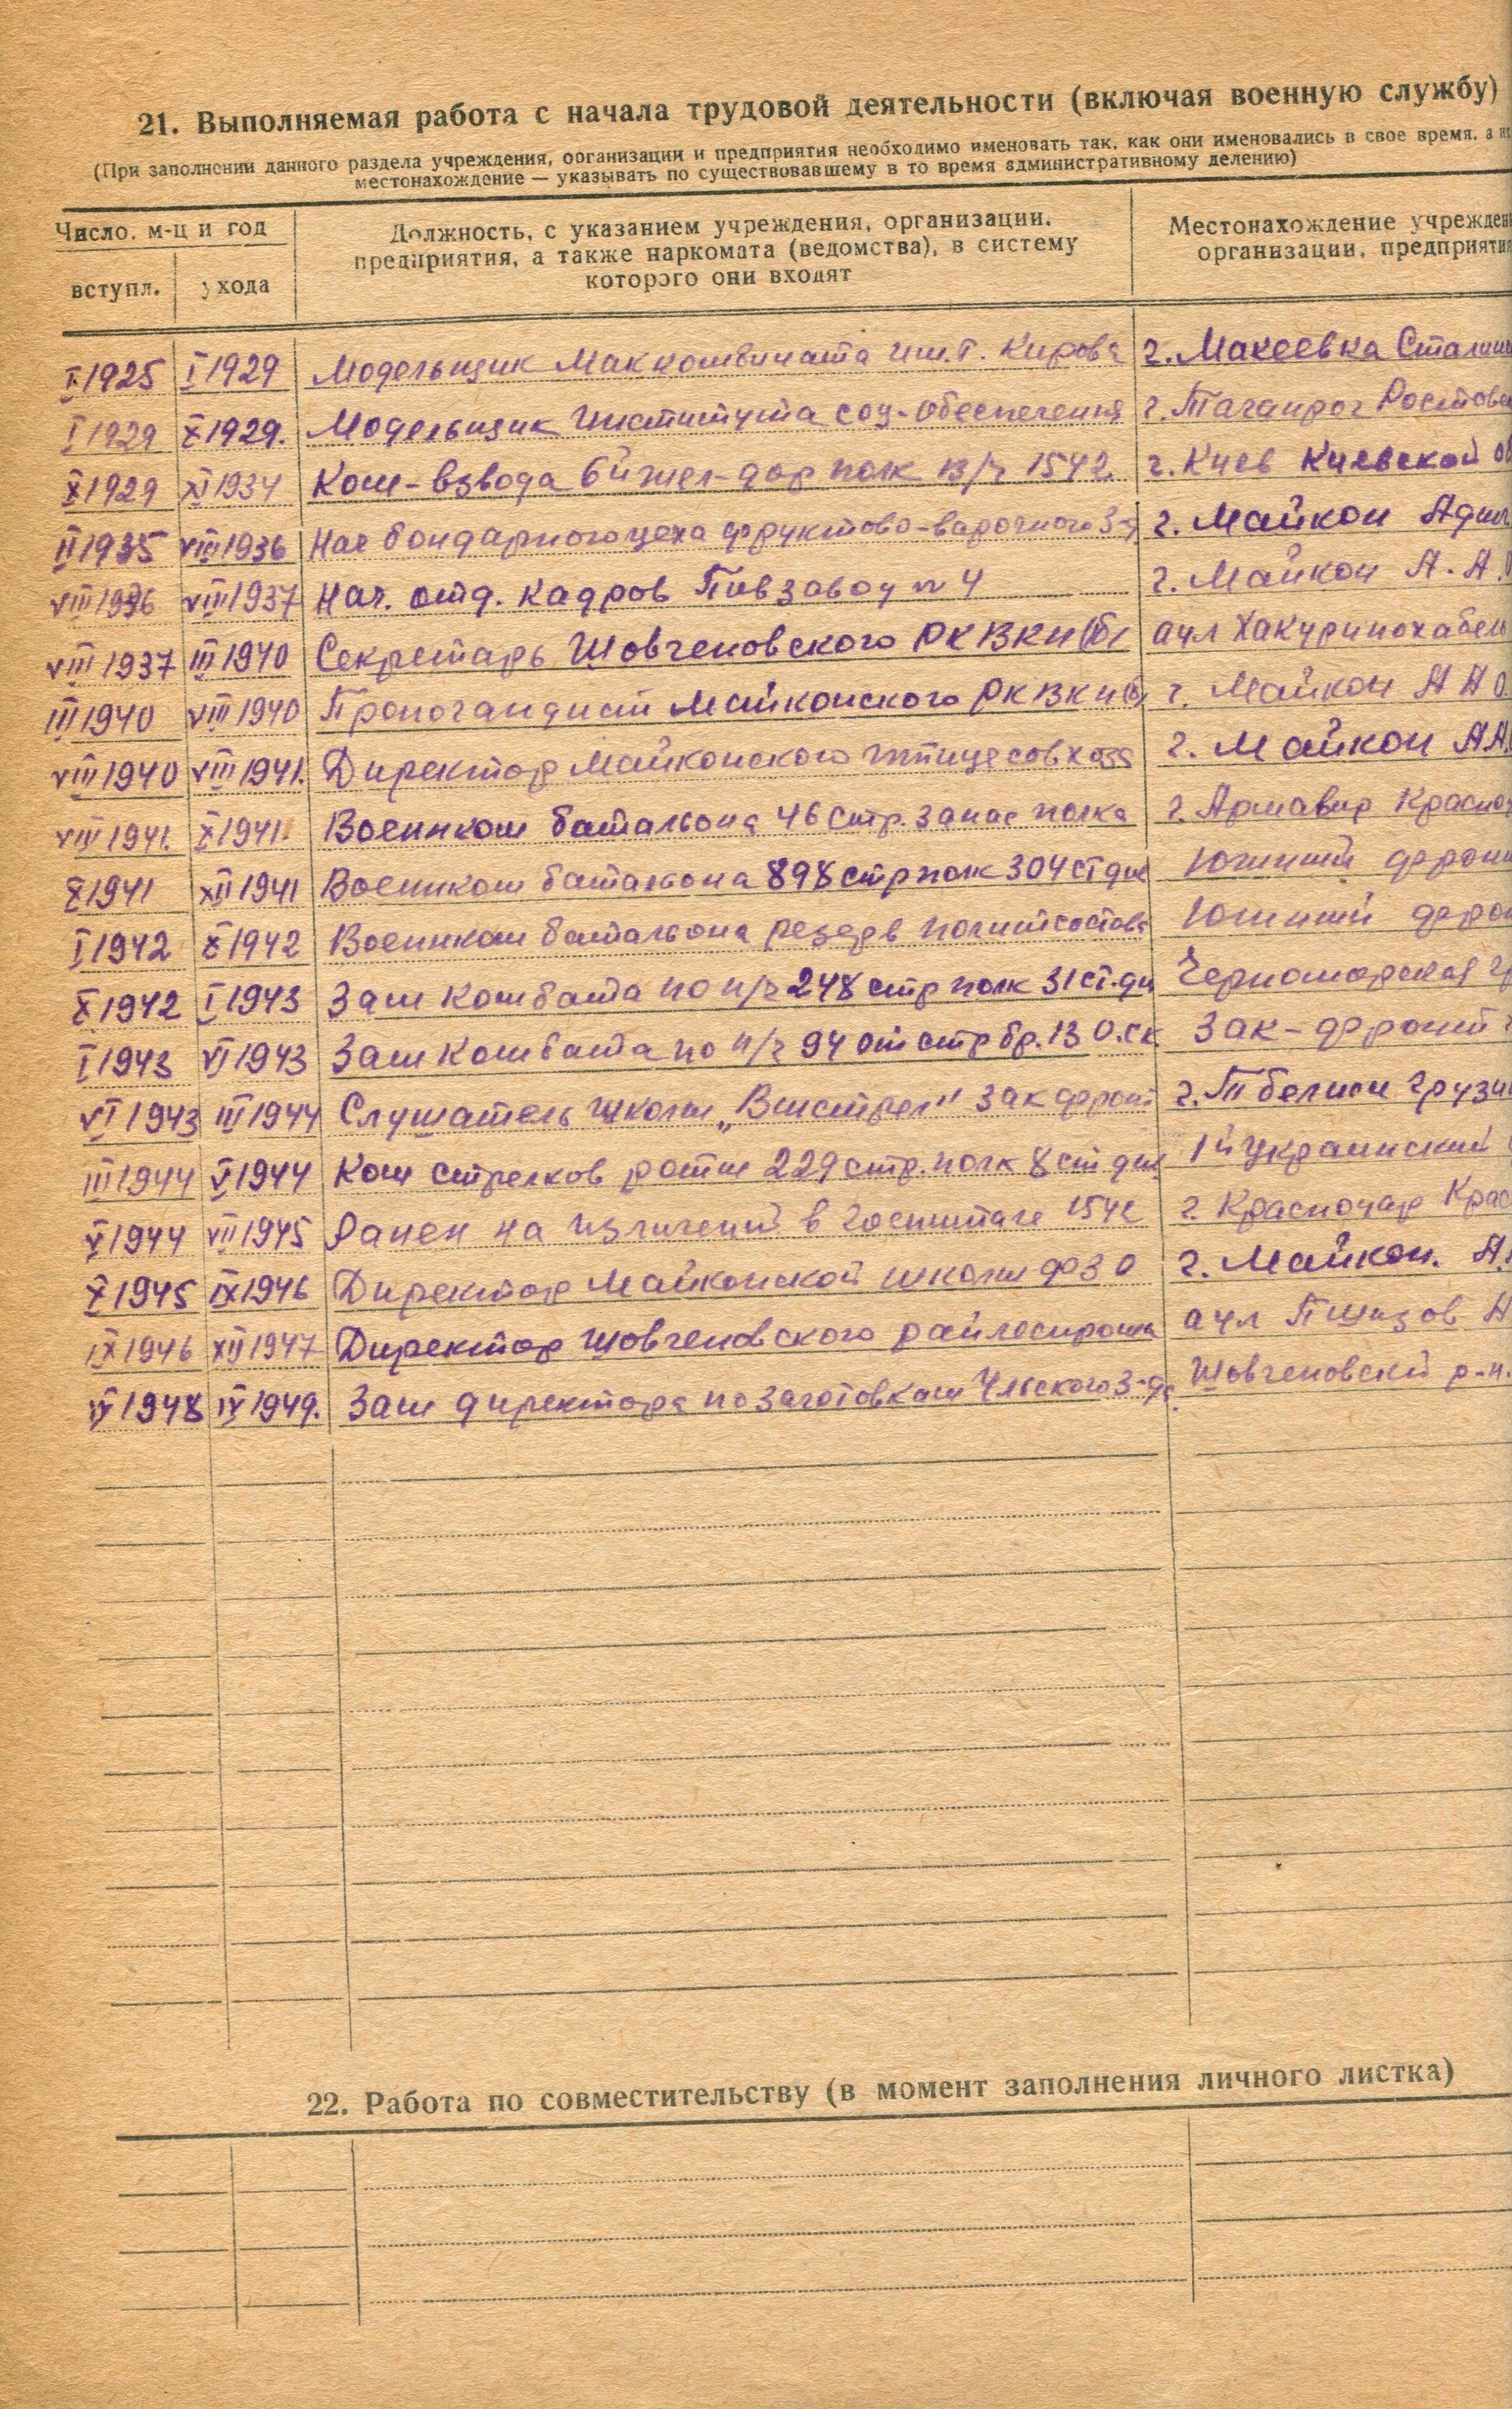 21. Выполняемая работа с начала трудовой деятельности (включая военную службу)
(При заполнении данного раздела учреждения, организации и предприятия необходимо именовать так, как они именовались в свое время, а их
местонахождение — указывать по существовавшему в то время административному делению)
Число, м-ц и год
вступл. ухода
Должность, с указанием учреждения, организации,
предприятия, а также наркомата (ведомства), в систему
которого они входят
Местонахождение учрежден
организации, предприятия
I 1925 I 1929 Модельщик Маккомбината им. Кирова г. Макеевка Сталин
I 1929 X 1929. Модельщик Института соц-обеспечения г. Таганрог Ростовс
X 1929 XI 1934 Ком-взвода 6й жел-дор полк в/ч 1542 г. Киев Киевской об
II 1935 VIII 1936 Нач бондарного цеха фруктово-варочного з-д г. Майкоп Адыг
VIII 1936 VIII 1937 Нач. отд. кадров Пивзавод № 4 г. Майкоп А.А.
VIII 1937 III 1940 Секретарь Шовгеновского РК ВКП(б) аул Хакуринохабль
III 1940 VIII 1940 Пропогандист Майкопского РК ВКП(б) г. Майкоп ААО
VIII 1940 VIII 1941. Директор Майкопского птицесовхоза г. Майкоп АА
VIII 1941. X 1941. Военком баталиона 46 стр. запас полка г. Армавир Красно
X 1941 XII 1941 Военком баталиона 898 стр полк 304 ст див Южный фрон
I 1942 X 1942 Военком баталиона резерв политсостава Южный фрон
X 1942 I 1943 Зам Комбата по п/ч 248 стр полк 31 ст. див Черноморская гр
I 1943 VI 1943 Зам Комбата по п/ч 94 от стр бр. 13 О.ск Зак-фронт
VI 1943 III 1944 Слушатель школы „Выстрел" Закфронт г. Тбелиси Грузи
III 1944 V 1944 Ком стрелков роты 229 стр. полк 8 ст див 1й Украинский
V 1944 VII 1945 Ранен на изличений в госпитале 1542 г. Краснодар Крас
X 1945 IX 1946 Директор Майкопской школы ФЗО г. Майкоп. А.
IX 1946 XII 1947 Директор Шовгеновского райлеспрома аул Пшизов А
IV 1948 IV 1949. Зам директора по заготовкам Ульского з-да. Шовгеновскй р-н.
22. Работа по совместительству (в момент заполнения личного листка)